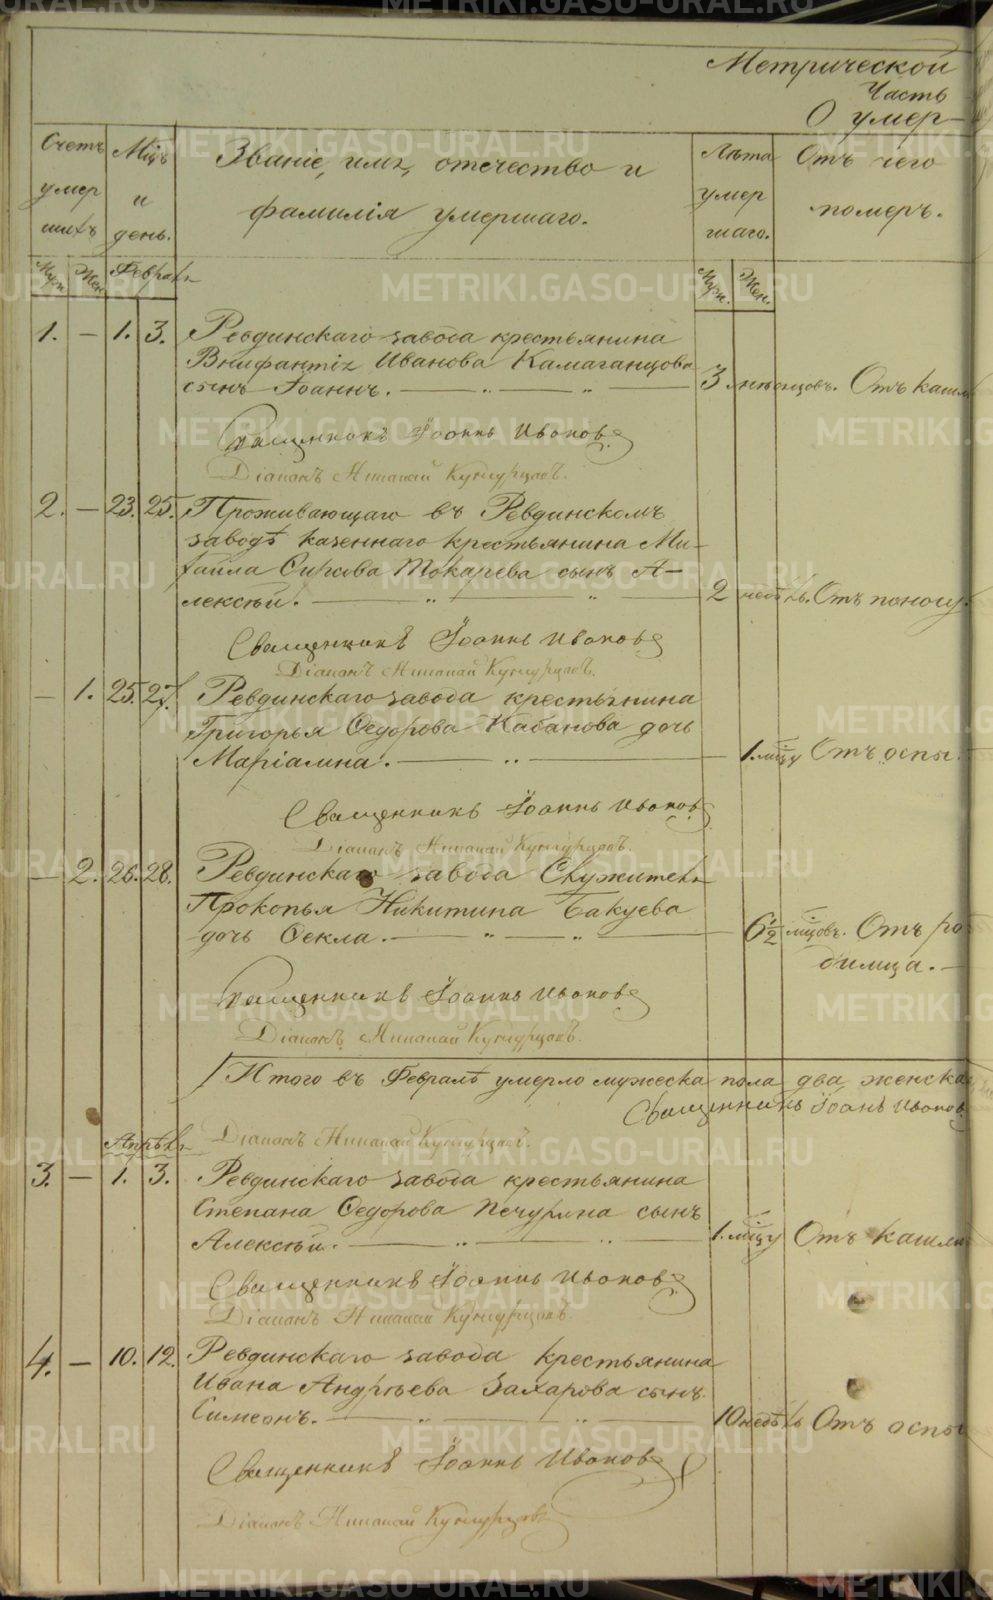 Метрической
Часть
О умер-
Счетъ умершихъ
Мцъ и день.
Званіе, имя, отечество и фамилія умершаго.
Лѣта умершаго.
Отъ чего померъ.
Муж. Жен. Февраль Муж. Жен.
1. — 1. 3. Ревдинскаго завода крестьянина
Внифантія Иванова Камаганцова
сынъ Іоаннъ. 3 мѣсяцовъ. Отъ кашля
Священникъ Іоаннъ Ивановъ
Діаконъ Николай Кунгурцовъ.
2. — 23. 25. Проживающаго въ Ревдинскомъ
заводѣ казеннаго крестьянина Ми-
хайла Токарева сынъ А-
лексѣй. 2 недѣль. Отъ поносу.
Священникъ Іоаннъ Ивановъ
Діаконъ Николай Кунгурцовъ.
— 1. 25. 27. Ревдинскаго завода крестьянина
Григорья Ѳедорова Кабанова дочь
Маріамна. 1. мцу Отъ оспы.
Священникъ Іоаннъ Ивановъ
Діаконъ Николай Кунгурцовъ.
— 2. 26. 28. Ревдинскаго завода Служителя
Прокопья Никитина Бакуева
дочь Ѳекла. 6½ мцовъ. Отъ ро-
димца.
Священникъ Іоаннъ Ивановъ
Діаконъ Николай Кунгурцовъ.
Итого въ Февралѣ умерло мужеска пола два женска
Священникъ Іоаннъ Ивановъ
Діаконъ Николай Кунгурцовъ.
Апрѣль
3. — 1. 3. Ревдинскаго завода крестьянина
Степана Ѳедорова Печурина сынъ
Алексѣй. 1. мцу Отъ кашля
Священникъ Іоаннъ Ивановъ
Діаконъ Николай Кунгурцовъ.
4. — 10. 12. Ревдинскаго завода крестьянина
Ивана Андреева Захарова сынъ
Симеонъ. 10 недѣль Отъ оспы
Священникъ Іоаннъ Ивановъ
Діаконъ Николай Кунгурцовъ
METRIKI.GASO-URAL.RU